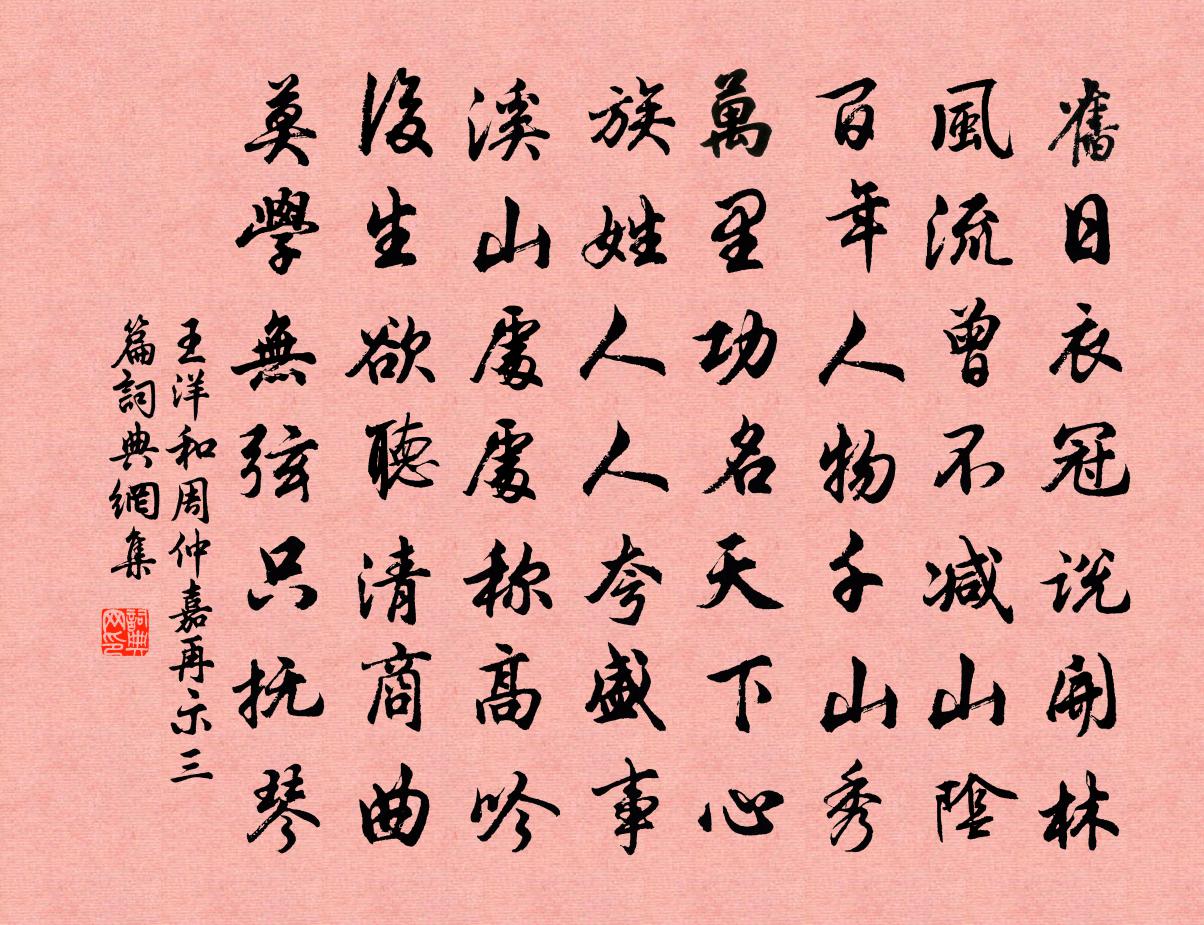 舊日衣冠説開林
風流曾不减山陰
百年人物千山秀
萬里功名天下心
族姓人人夸盛事
溪山處處称高吟
後生欲聽清商曲
莫學無弦只抚琴
王洋和周仲嘉再示三
篇詞典網集
詞典网印